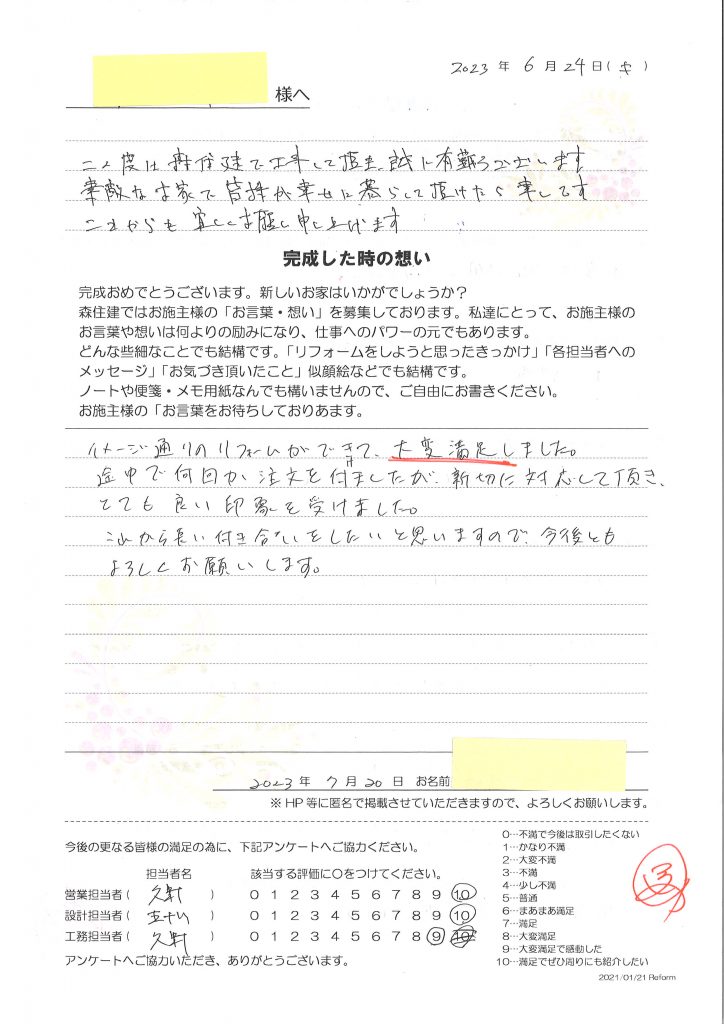 2023年 6月24日( )
様へ
この度は森住建で工事して頂き、誠に有難うございます
素敵なお家で皆様が幸せに暮らして頂けたら幸いです
これからも宜しくお願い申し上げます
完成した時の想い
完成おめでとうございます。新しいお家はいかがでしょうか？
森住建ではお施主様の「お言葉・想い」を募集しております。私達にとって、お施主様の
お言葉や想いは何よりの励みになり、仕事へのパワーの元でもあります。
どんな些細なことでも結構です。「リフォームをしようと思ったきっかけ」「各担当者への
メッセージ」「お気づき頂いたこと」似顔絵などでも結構です。
ノートや便箋・メモ用紙なんでも構いませんので、ご自由にお書きください。
お施主様の「お言葉をお待ちしておりあます。
イメージ通りのリフォームができて、大変満足しました。
途中で何回か注文を付けましたが、新切に対応して頂き、
とても良い印象を受けました。
これから長い付き合いをしたいと思いますので、今後とも
よろしくお願いします。
2023年 7月20日 お名前
※HP等に匿名で掲載させていただきますので、よろしくお願いします。
今後の更なる皆様の満足の為に、下記アンケートへご協力ください。
担当者名 該当する評価に○をつけてください。
営業担当者( ) 0 1 2 3 4 5 6 7 8 9 10
設計担当者( ) 0 1 2 3 4 5 6 7 8 9 10
工務担当者( ) 0 1 2 3 4 5 6 7 8 9 10
アンケートへご協力いただき、ありがとうございます。
0…不満で今後は取引したくない
1…かなり不満
2…大変不満
3…不満
4…少し不満
5…普通
6…まあまあ満足
7…満足
8…大変満足
9…大変満足で感動した
10…満足でぜひ周りにも紹介したい
2021/01/21 Reform